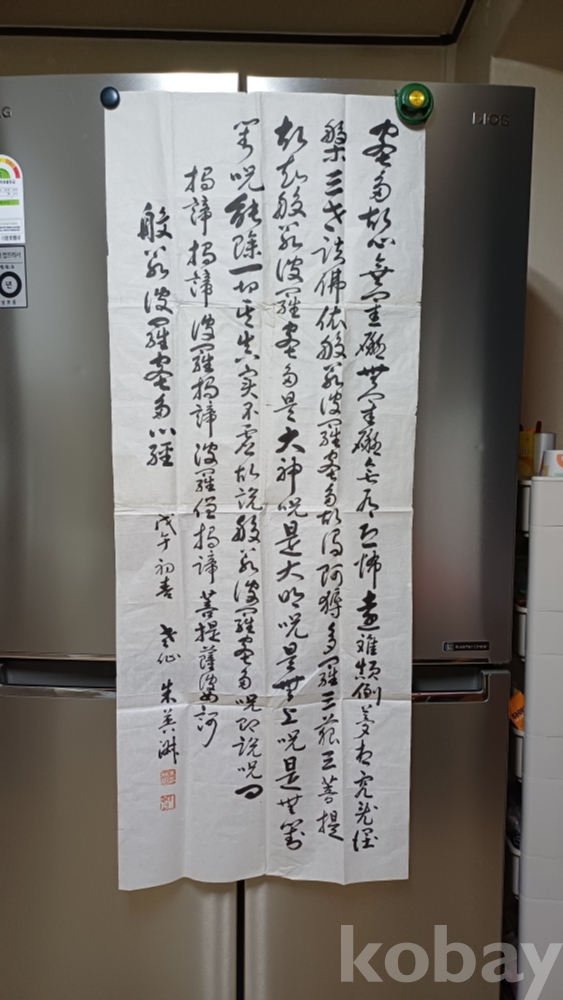 蜜多故心無罣礙無罣礙故無有恐怖遠離顚倒夢想究竟涅
槃三世諸佛依般若波羅蜜多故得阿耨多羅三藐三菩提
故知般若波羅蜜多是大神呪是大明呪是無上呪是無等
等呪能除一切苦眞實不虛故說般若波羅蜜多呪卽說呪曰
揭諦揭諦波羅揭諦波羅僧揭諦菩提薩婆訶
般若波羅蜜多心經
戊午初春 朱英淋
kobay